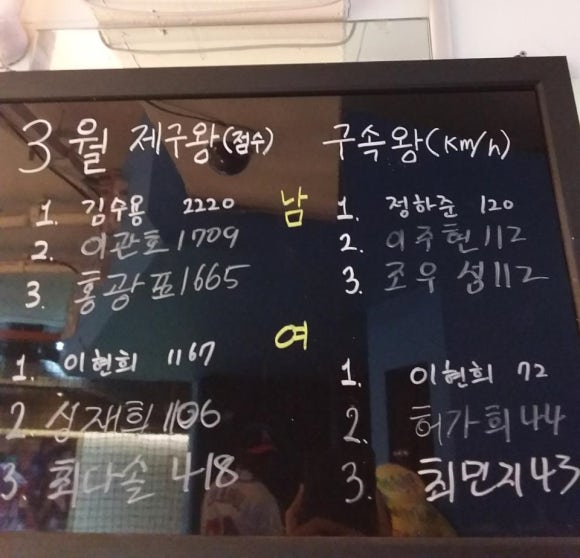 3월 제구왕(점수)
1. 김수용 2220
2. 이관호 1709
3. 홍광표 1665
남
1. 이현희 1167
2. 성재희 1106
3. 최다솔 418
여
구속왕(km/h)
1. 정하준 120
2. 이주현 112
3. 조우성 112
1. 이현희 72
2. 허가희 44
3. 최민지 43